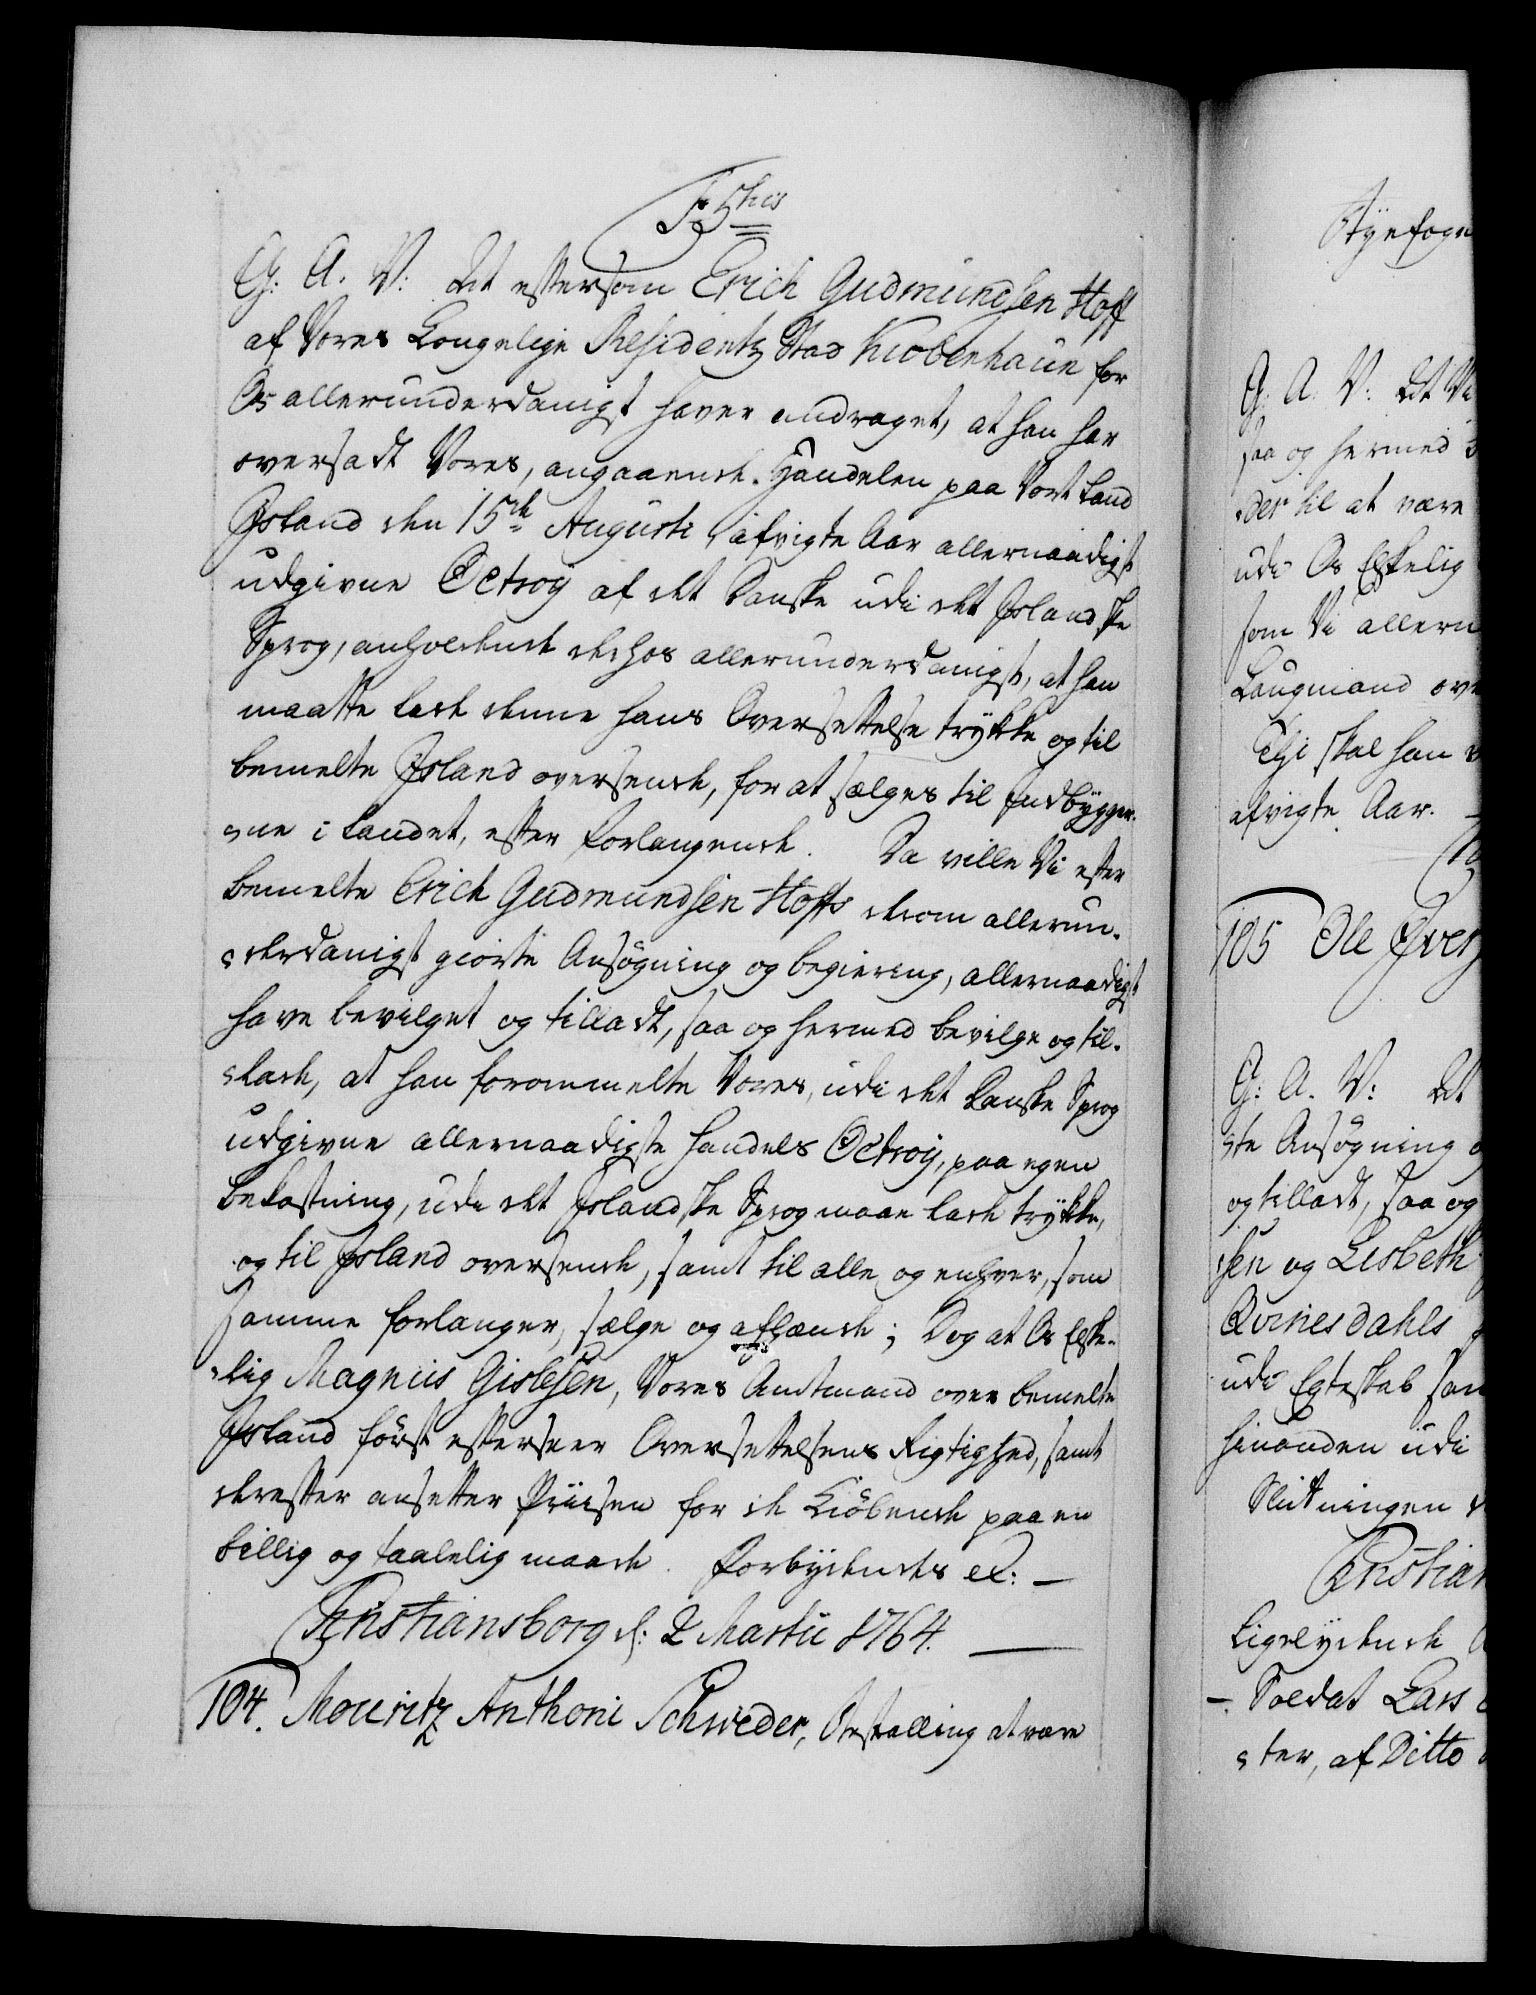 F 5his
G: A. V: At eftersom Erich Gudmundsen Hoff
af Vores Kongelige Residentz Stad Kiobenhaun for
Os allerunderdanigst haver andraget, at han har
oversadt Vores, angaaende Handelen paa Vort Land
Island den 15de Augusti afvigte Aar allernaadigst
udgivne Octroy af det Danske udi det Islandske
Sprog, anholdende derhos allerunderdanigst, at han
maatte lade denne hans Oversettelse trykke og til
bemelte Island oversende, for at sælges til Indbygger-
ne i Landet, efter forlangende. Da ville Vi efter
bemelte Erich Gudmundsen Hoffs derom allerun-
derdanigst giorte Ansøgning og begiering, allernaadigst
have bevilget og tilladt, saa og hermed bevilge og til-
lade, at han forommelte Vores, udi det Danske Sprog
udgivne allernaadigste Handels Octroy, paa egen
bekostning, udi det Islandske Sprog maae lade trykke,
og til Island oversende, samt til alle og enhver, som
samme forlanger, sælge og afhænde; Dog at Os Elske-
lig Magnus Gislesen, Vores Amtmand over bemelte
Island først efterseer Oversettelsens Rigtighed, samt
derefter ansetter Priisen for de Kiøbende paa en
billig og taalelig maade. Forbydendes etc: —
Christiansborg d: 2 Martii 1764. —
104. Mouritz Anthoni Schweder, Bestalling at være
G. A. V: At Vi
saa og hermed
der til at være
udi Os Elskelig
som Vi allern
Laugmand ov
Thi skal han
afvigte Aar. —
105 Ole Iver
G: A. V: At
ste Ansøgning o
og tilladt, saa og
sen og Lisbeth
Qvinesdahls
udi Egteskab sam
hinanden udi
Slutningen
Christian
Ligelydende
— Soldat Lars
ster, af Ditto